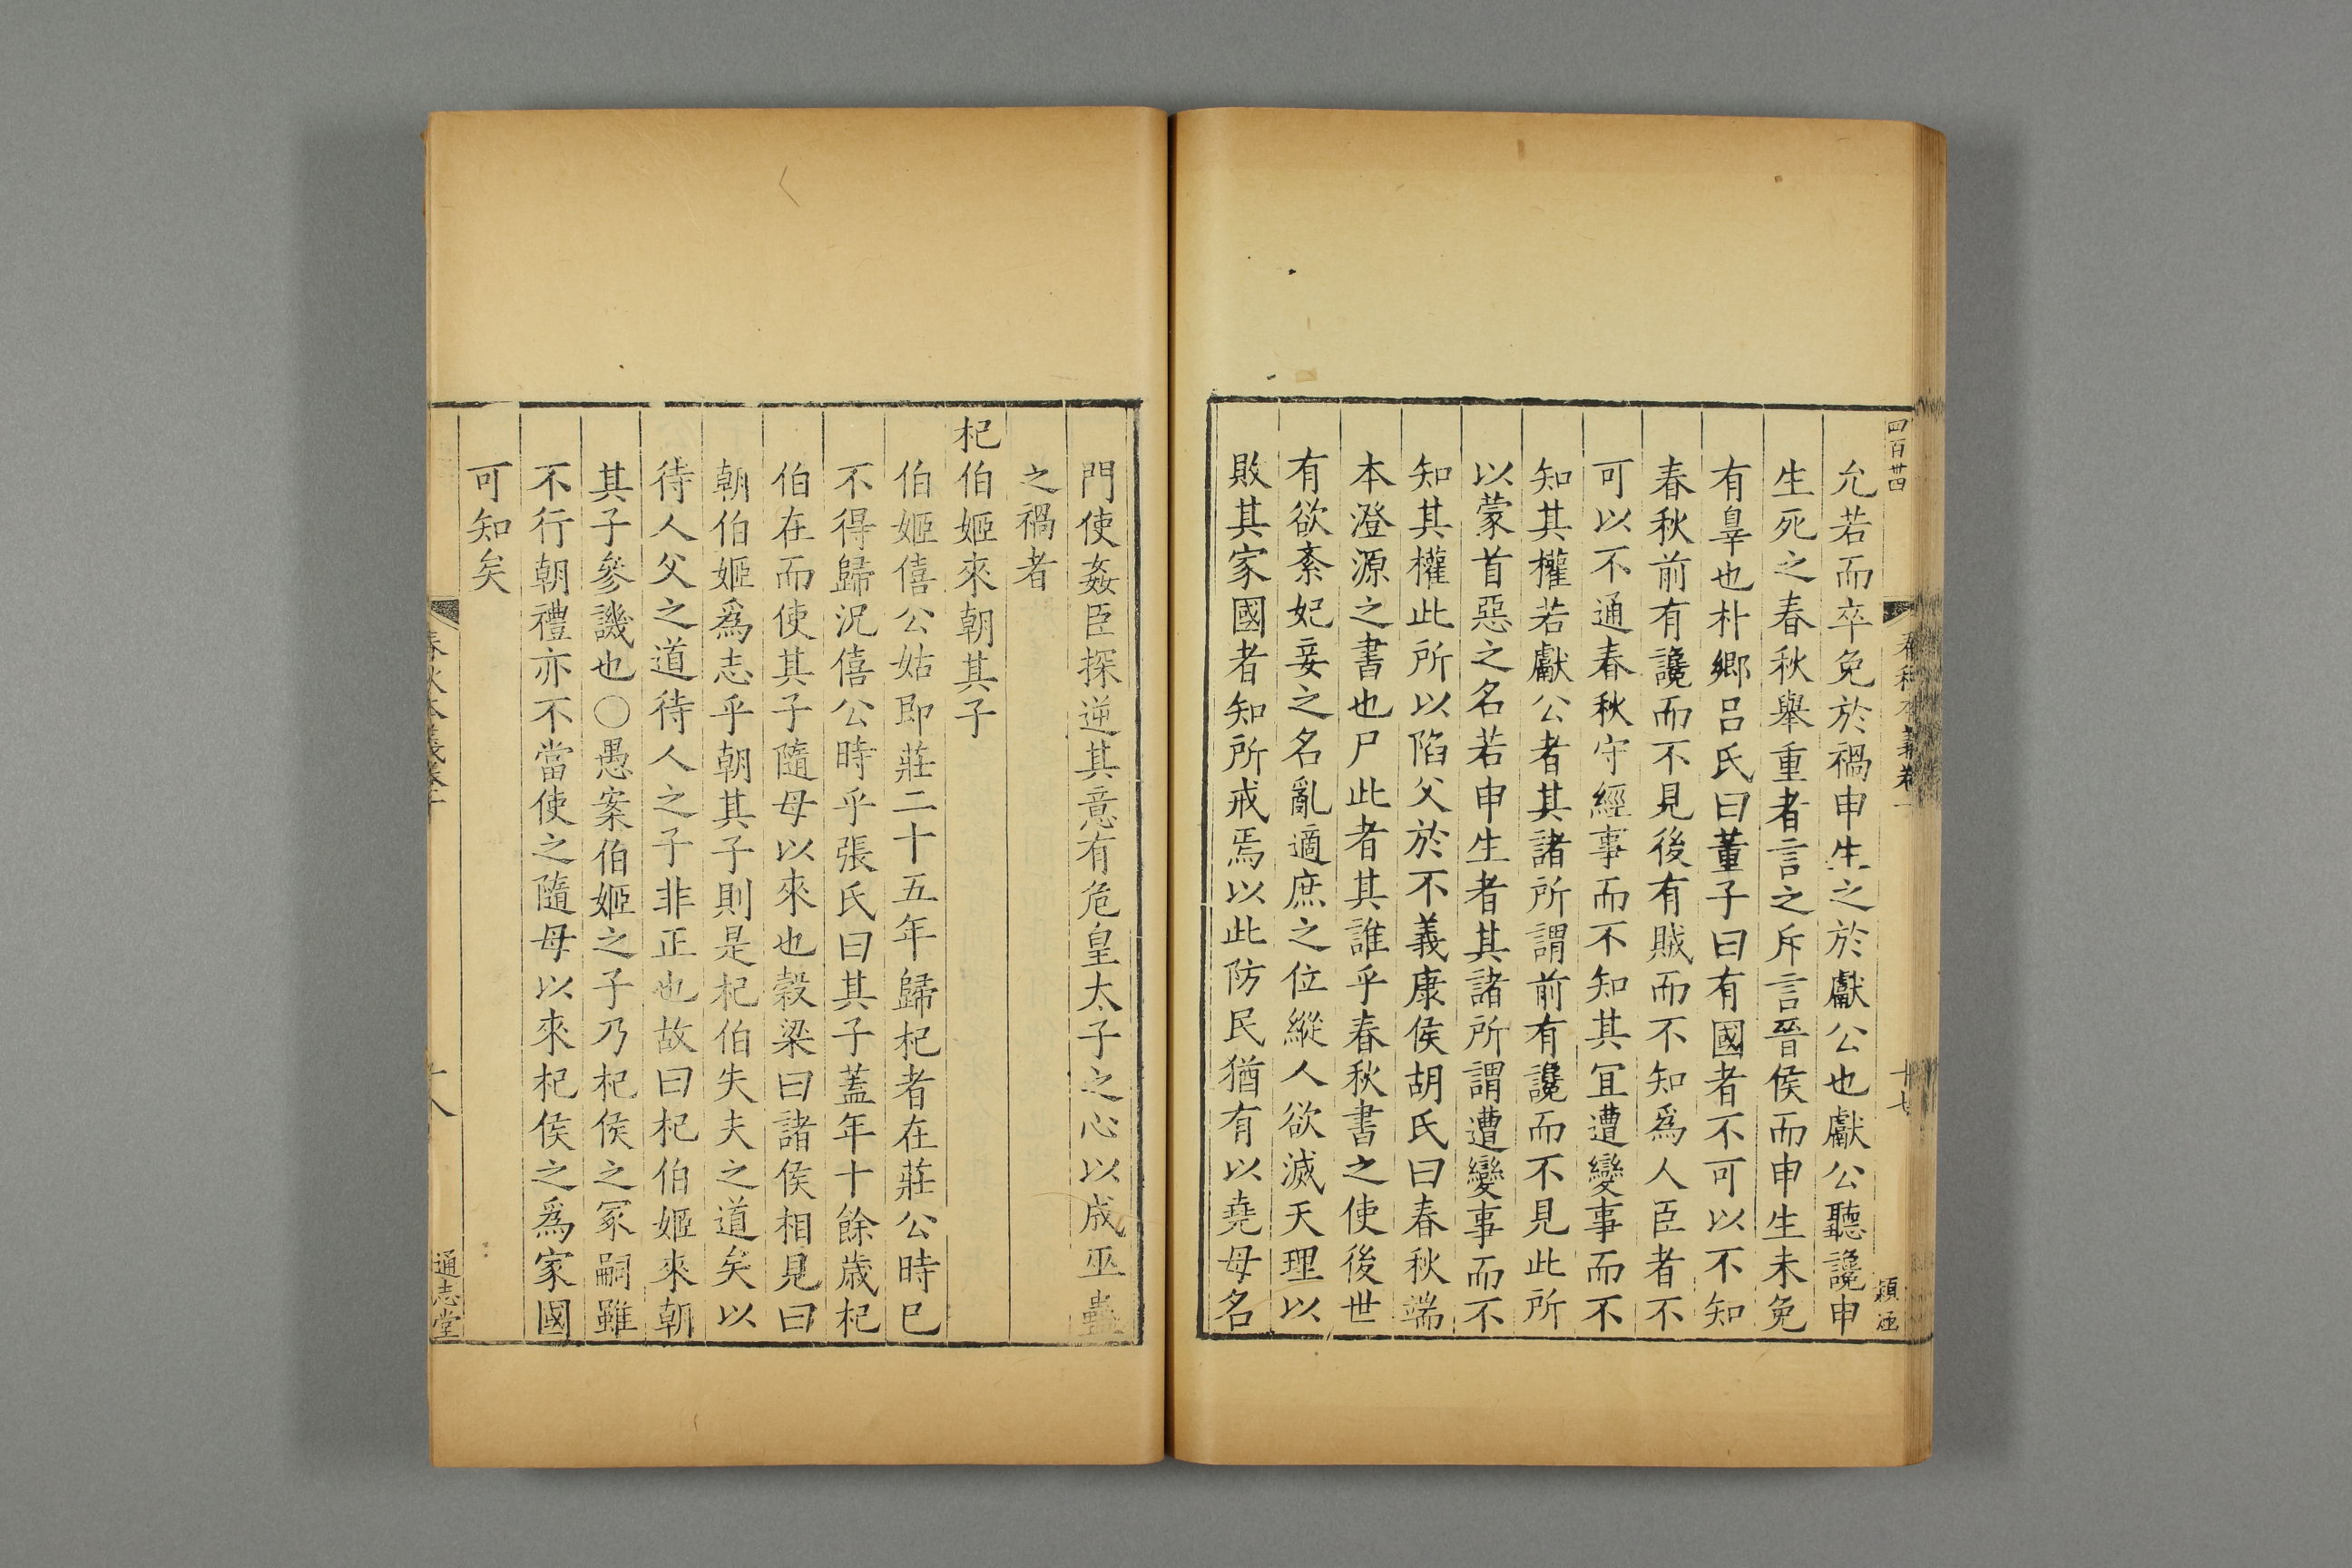 四百卌四
允若而卒免於禍申生之於獻公也獻公聽讒申
生死之春秋舉重者言之斥言晉侯而申生未免
有辠也朴鄉吕氏曰董子曰有國者不可以不知
春秋前有讒而不見後有賊而不知爲人臣者不
可以不通春秋守經事而不知其宜遭變事而不
知其權若獻公者其諸所謂前有讒而不見此所
以蒙首惡之名若申生者其諸所謂遭變事而不
知其權此所以陷父於不義康侯胡氏曰春秋端
本澄源之書也尸此者其誰乎春秋書之使後世
有欲紊妃妾之名亂適庶之位縱人欲滅天理以
敗其家國者知所戒焉以此防民猶有以堯母名
春秋本義卷
十七
穎
門使姦臣探逆其意有危皇太子之心以成巫蠱
之禍者
杞伯姬來朝其子
伯姬僖公姑即莊二十五年歸杞者在莊公時巳
不得歸況僖公時乎張氏曰其子蓋年十餘歲杞
伯在而使其子隨母以來也穀梁曰諸侯相見曰
朝伯姬爲志乎朝其子則是杞伯失夫之道矣以
待人父之道待人之子非正也故曰杞伯姬來朝
其子參譏也○愚案伯姬之子乃杞侯之冢嗣雖
不行朝禮亦不當使之隨母以來杞侯之爲家國
可知矣
春秋本義卷十
十八
通志堂